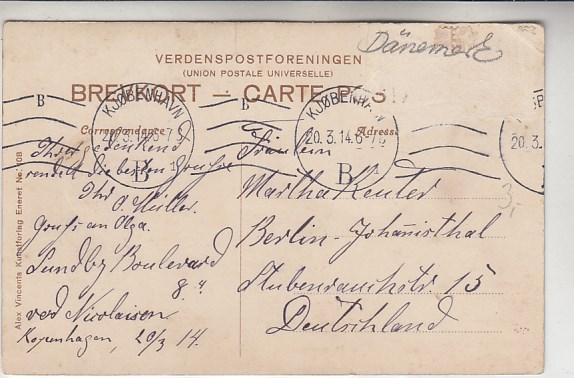 Dänemark
VERDENSPOSTFORENINGEN
(UNION POSTALE UNIVERSELLE)
BREVKORT — CARTE POS
KJØBENHAVN
20.3.14.6-7
B
KJØBENHAVN
20.3.14.6-7
B
20.3.
B
B
Correspondance
Adresse
Ihrer gedenkend
sendet die besten Grüsse
Ihr
O. Müller.
Gruß an Olga.
Sundby Boulevard
8
ved Nicolaisen
Kopenhagen, 20/3 14.
Fräulein
Martha Keuter
Berlin-Johannisthal
Stubenrauchstr. 15
Deutschland
3,-
Alex Vincents Kunstforlag Eneret No. 108